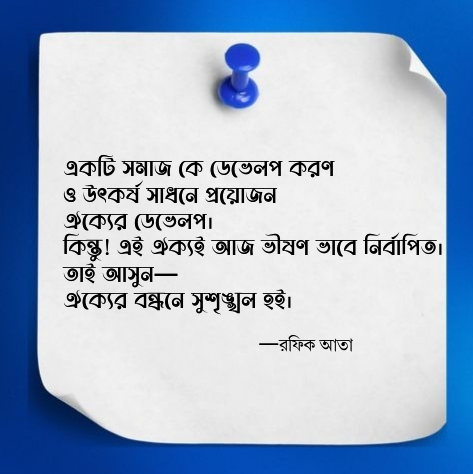 একটি সমাজ কে ডেভেলপ করণ
ও উৎকর্ষ সাধনে প্রয়োজন
ঐক্যের ডেভেলপ।
কিন্তু! এই ঐক্যই আজ ভীষণ ভাবে নির্বাপিত।
তাই আসুন—
ঐক্যের বন্ধনে সুশৃঙ্খল হই।
—রফিক আতা